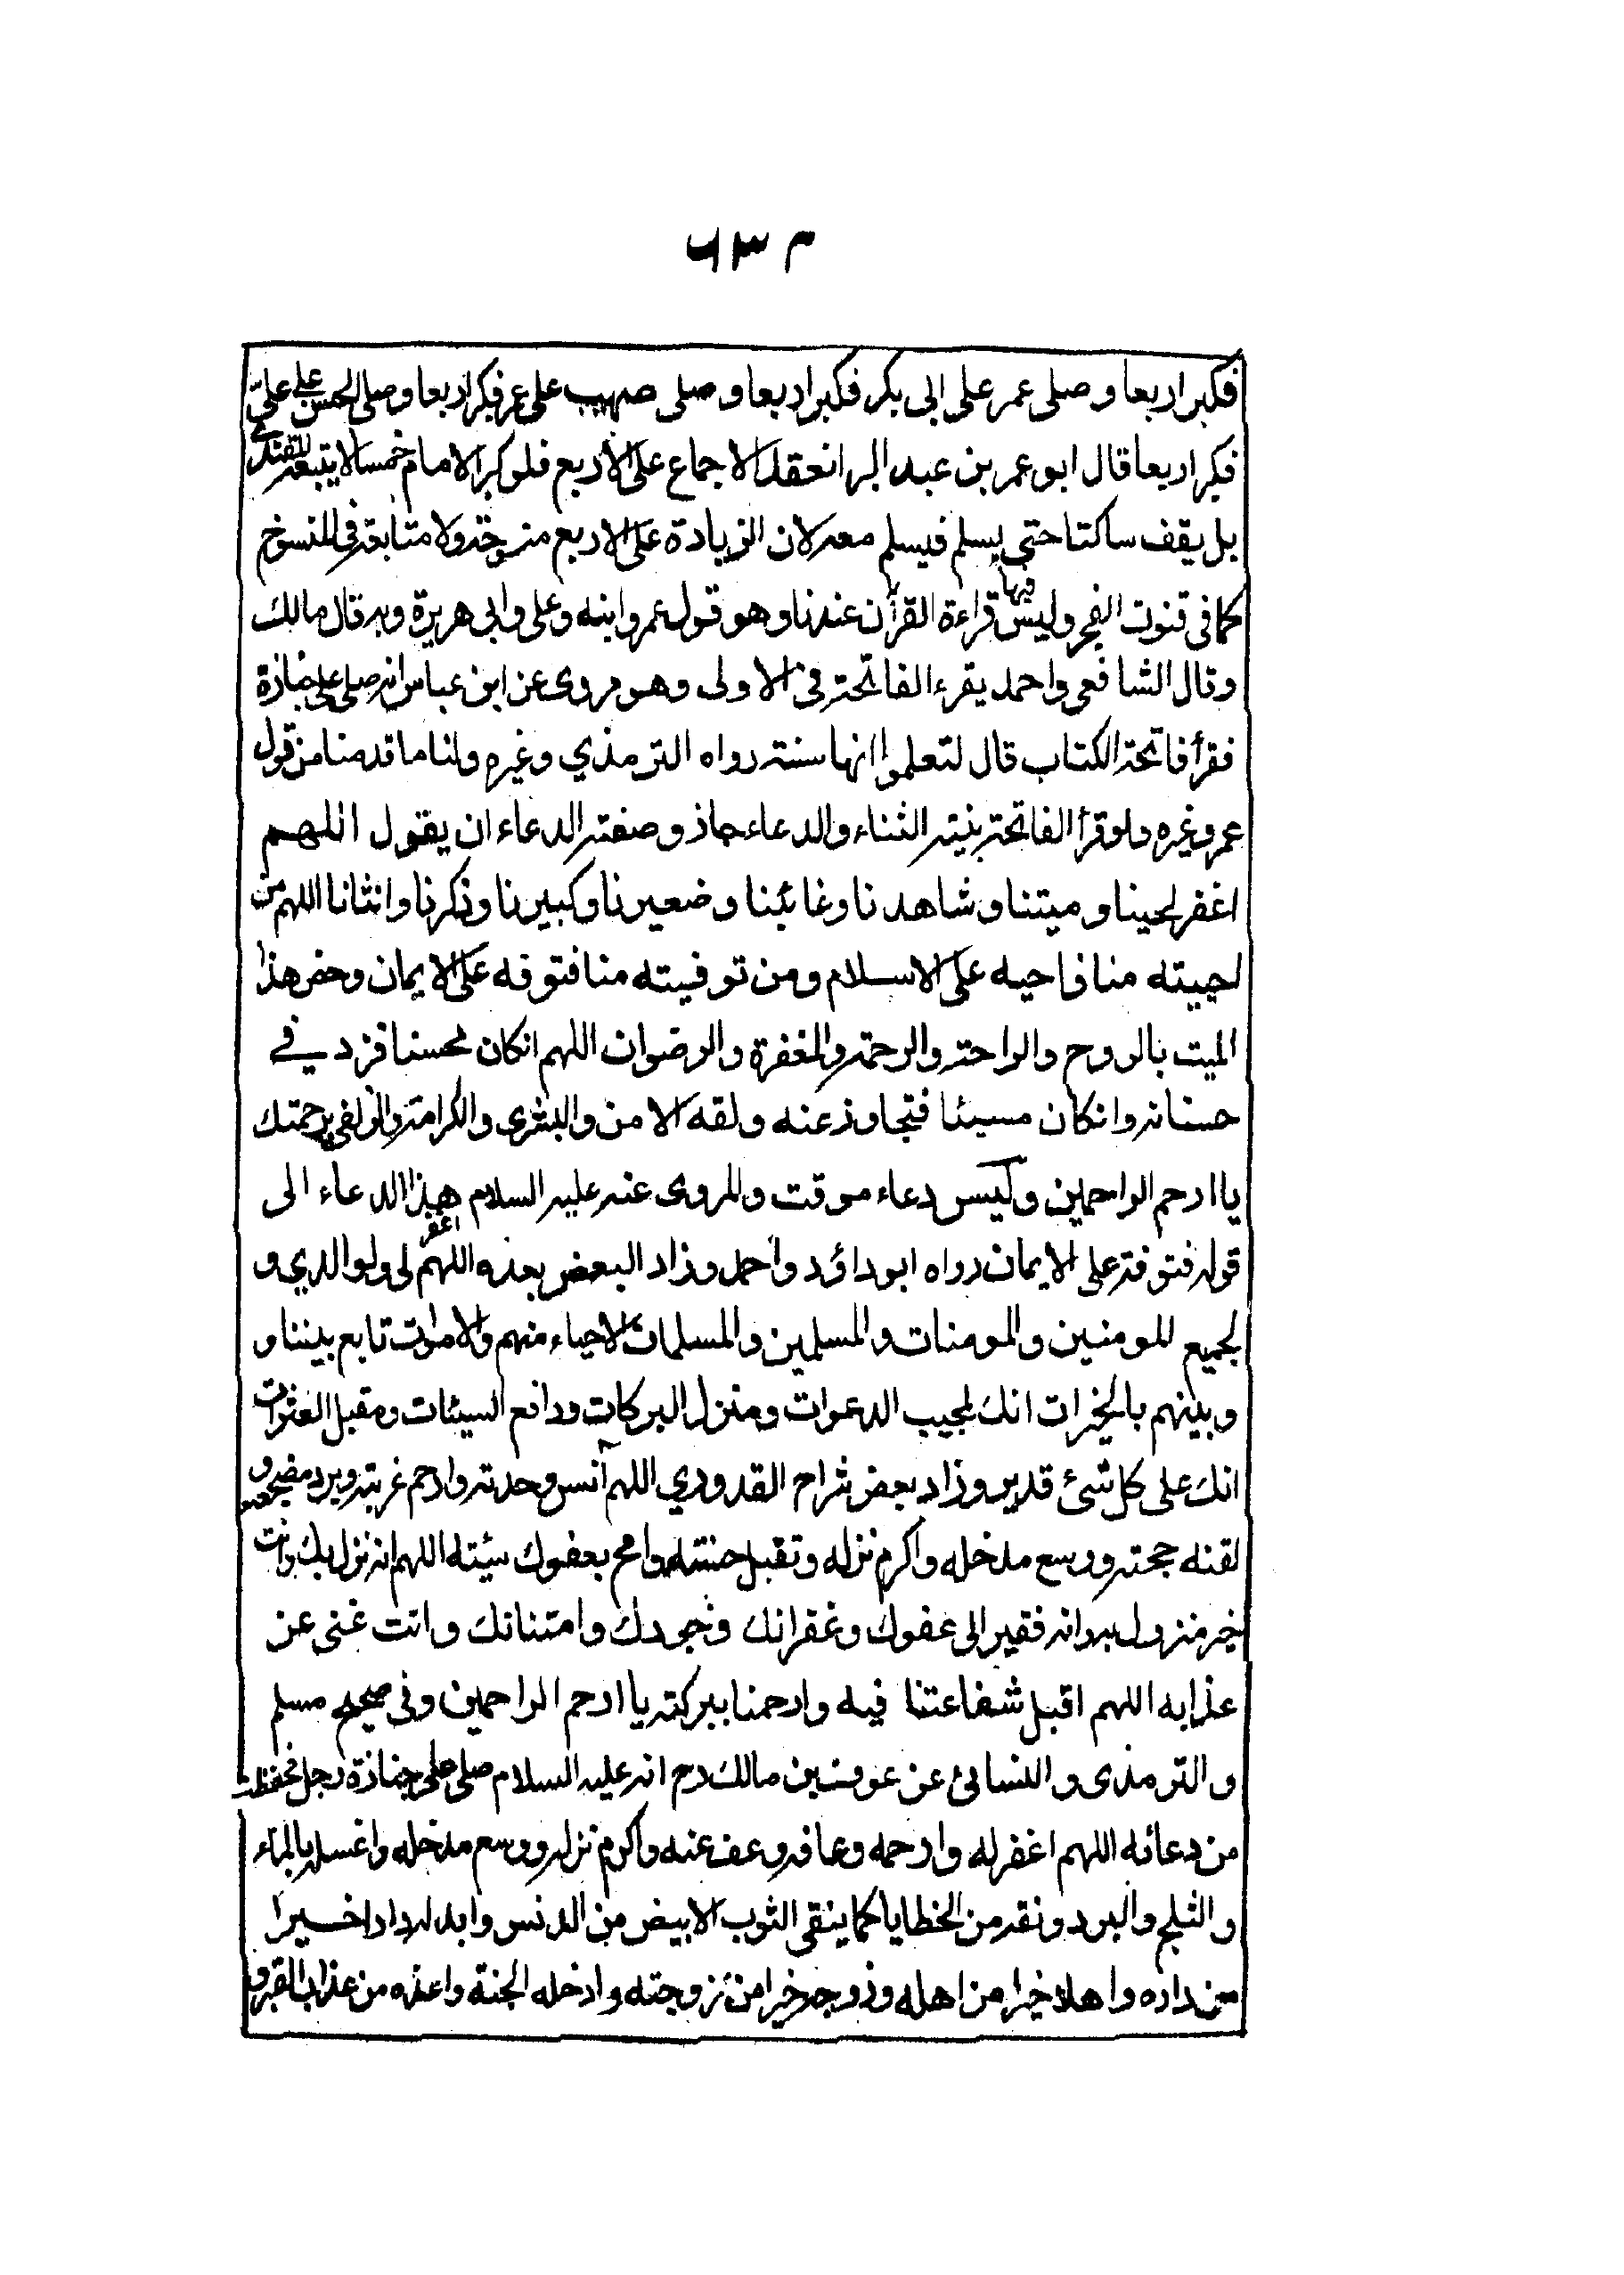 ٦٣٢
فكبر اربعا وصلى عمر على ابى بكر فكبر اربعا وصلى صهيب على عمر فكبر اربعا وصلى الحسن على على
فكبر اربعا قال ابو عمر بن عبد البر انعقد الاجماع على الاربع فلو كبر الامام خمسا لا يتبعه المقتدى
بل يقف ساكتا حتى يسلم فيسلم معه لان الزيادة على الاربع منسوخة ولا متابعة فى المنسوخ
كما فى قنوت الفجر وليس فيها قراءة القرآن عندنا وهو قول عمر وابنه وعلى وابى هريرة وبه قال مالك
وقال الشافعى واحمد يقرء الفاتحة فى الاولى وهو مروى عن ابن عباس انه صلى على جنازة
فقرأ فاتحة الكتاب قال لتعلموا انها سنة رواه الترمذي وغيره ولنا ما قدمنا من قول
عمر وغيره ولو قرأ الفاتحة بنية الثناء والدعاء جاز وصفة الدعاء ان يقول اللهم
اغفر لحينا وميتنا وشاهدنا وغائبنا وصغيرنا وكبيرنا وذكرنا وانثانا اللهم من
احييته منا فاحيه على الاسلام ومن توفيته منا فتوفه على الايمان وخص هذا
الميت بالروح والراحة والرحمة والمغفرة والرضوان اللهم انكان محسنا فزد في
حسناته وانكان مسيئا فتجاوز عنه ولقه الامن والبشرى والكرامة والزلفى برحمتك
يا ارحم الراحمين وليس دعاء موقت والمروى عنه عليه السلام هذا الدعاء الى
قوله فتوفه على الايمان رواه ابو داؤد واحمد وزاد البعض بعده اللهم اغفر لى ولوالدي و
لجميع المومنين والمومنات والمسلمين والمسلمات الاحياء منهم والاموات تابع بيننا و
وبينهم بالخيرات انك مجيب الدعوات ومنزل البركات ودافع السيئات ومقيل العثرات
انك على كل شئ قدير وزاد بعض شراح القدوري اللهم آنس وحدته وارحم غربته وبرد مضجعه و
لقنه حجته ووسع مدخله واكرم نزله وتقبل حسنته وامح بعفوك سيئته اللهم انه نزل بك وانت
خير منزول به وانه فقير الى عفوك وغفرانك وجودك وامتنانك وانت غنى عن
عذابه اللهم اقبل شفاعتنا فيه وارحمنا ببركته يا ارحم الراحمين وفى صحيح مسلم
والترمذى والنسائى عن عوف بن مالك رح انه عليه السلام صلى على جنازة رجل فحفظت
من دعائه اللهم اغفر له وارحمه وعافه وعف عنه واكرم نزله ووسع مدخله واغسله بالماء
والثلج والبرد ونقه من الخطايا كما ينقى الثوب الابيض من الدنس وابدله دارا خيرا
من داره واهلا خيرا من اهله وزوجا خيرا من زوجته وادخله الجنة واعذه من عذاب القبر و